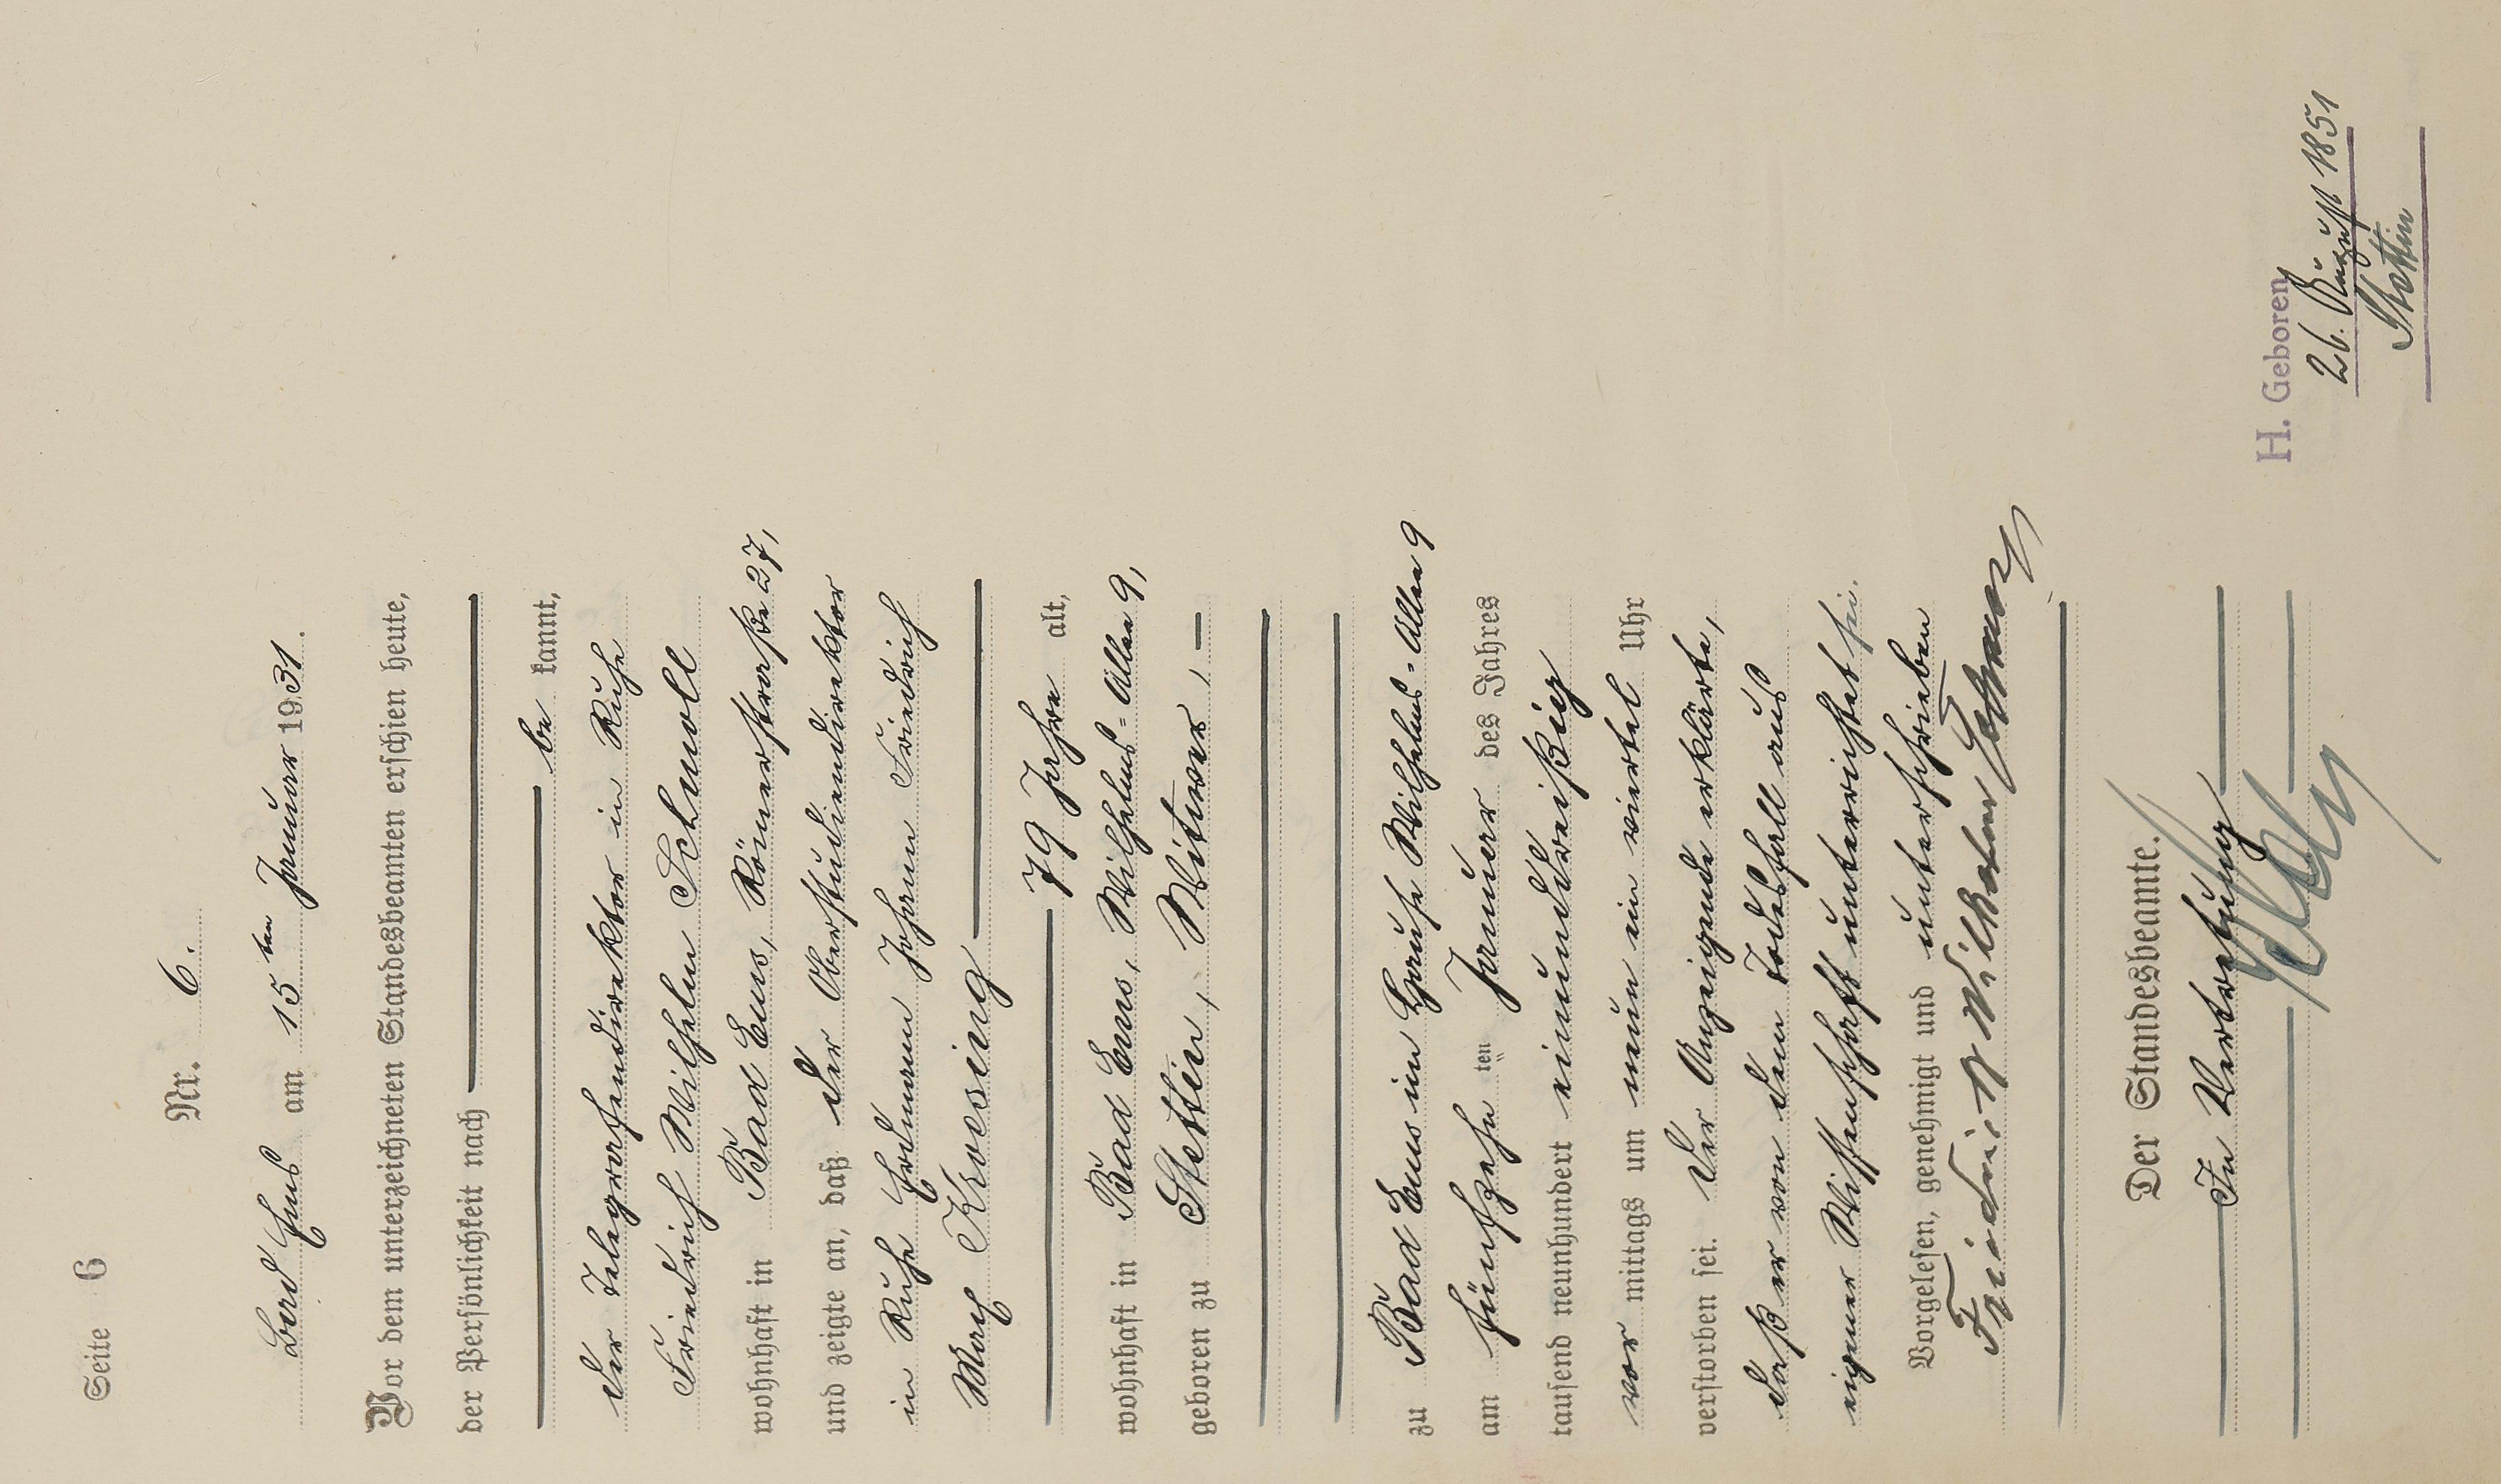 Seite 6
Nr. 6.
Bad Ems am 15ten Januar 1931.
Vor dem unterzeichneten Standesbeamten erschien heute,
der Persönlichkeit nach
be kannt,
der Telegraphendirektor in Ruhe
Friedrich Wilhelm Schmoll
wohnhaft in Bad Ems, Römerstraße 27,
und zeigte an, daß der Oberstudiendirektor
in Ruhe Erdmann Johann Friedrich
Max Krossing
79 Jahre alt,
wohnhaft in Bad Ems, Wilhelms-Allee 9,
geboren zu Stettin, Witwer, —
zu Bad Ems im Hause Wilhelms-Allee 9
am fünfzehn ten Januar des Jahres
tausend neunhundert einunddreißig
vor mittags um neun ein viertel Uhr
verstorben sei. Der Anzeigende erklärte,
daß er von dem Todesfall aus
eigener Wissenschaft unterrichtet sei.
Vorgelesen, genehmigt und unterschrieben
Friedrich Wilhelm Schmoll
Der Standesbeamte.
In Vertretung
H. Geboren
26. August 1851
Stettin